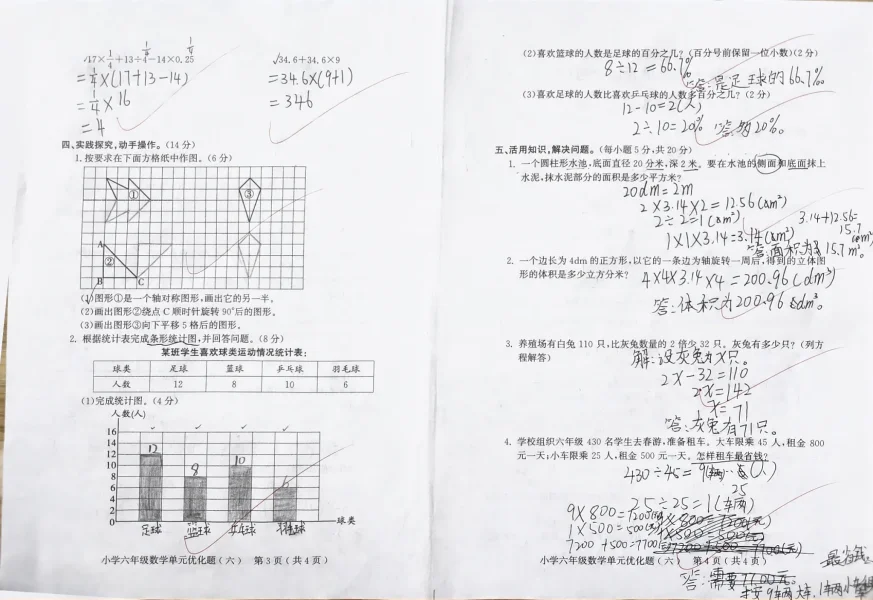 √17×1/4+13÷4-14×0.25
1/4
1/4
=1/4×(17+13-14)
=1/4×16
=4
√34.6+34.6×9
=34.6×(9+1)
=346
四、实践探究,动手操作。(14分)
1.按要求在下面方格纸中作图。(6分)
①
③
A
②
B
C
(1)图形①是一个轴对称图形,画出它的另一半。
(2)画出图形②绕点C顺时针旋转90°后的图形。
(3)画出图形③向下平移5格后的图形。
2. 根据统计表完成条形统计图,并回答问题。(8分)
某班学生喜欢球类运动情况统计表:
球类 足球 篮球 乒乓球 羽毛球
人数 12 8 10 6
(1)完成统计图。(4分)
人数(人)
16
14
12
10
8
6
4
2
0
12
8
10
6
足球 篮球 乒乓球
球类
小学六年级数学单元优化题(六) 第3页(共4页)
(2)喜欢篮球的人数是足球的百分之几?(百分号前保留一位小数)(2分)
8÷12=66.7%
答:是足球的66.7%。
(3)喜欢足球的人数比喜欢乒乓球的人数多百分之几?(2分)
12-10=2(人)
2÷10=20%
五、活用知识,解决问题。(每小题5分,共20分)
1. 一个圆柱形水池,底面直径20分米,深2米。要在水池的侧面和底面抹上
水泥,抹水泥部分的面积是多少平方米?
20dm=2m
2×3.14×2=12.56(m²)
2÷2=1(m²)
1×1×3.14=3.14(m²)
3.14+12.56=
15.7
答:面积为15.7m²。
2. 一个边长为4dm的正方形,以它的一条边为轴旋转一周后,得到的立体图
形的体积是多少立方分米?
4×4×3.14×4=200.96(dm³)
答:体积为200.96dm³。
3. 养殖场有白兔110只,比灰兔数量的2倍少32只。灰兔有多少只?(列方
程解答)
解:设灰兔为x只。
2x-32=110
2x=142
x=71
答:灰兔有71只。
4. 学校组织六年级430名学生去春游,准备租车。大车限乘45人,租金800
元一天;小车限乘25人,租金500元一天。怎样租车最省钱?
430÷45=9(辆)
25
25÷25=1(车辆)
9×800=7200(元)
1×500=500(元)
7200+500=7700
小学六年级数学单元优化题(六) 第4页(共4页)
最省钱
答:需要7700元。